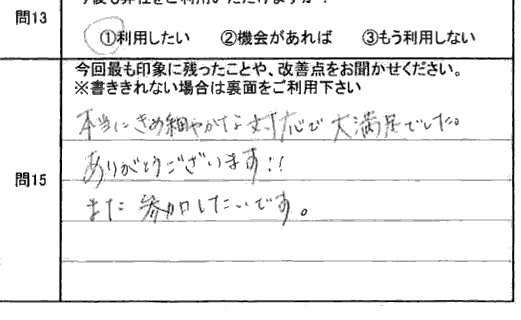 問13
今後も弊社をご利用いただけますか？
①利用したい ②機会があれば ③もう利用しない
問15
今回最も印象に残ったことや、改善点をお聞かせください。
※書ききれない場合は裏面をご利用下さい
本当にきめ細やかな対応で大満足でした。
ありがとうございます!!
また参加したいです。